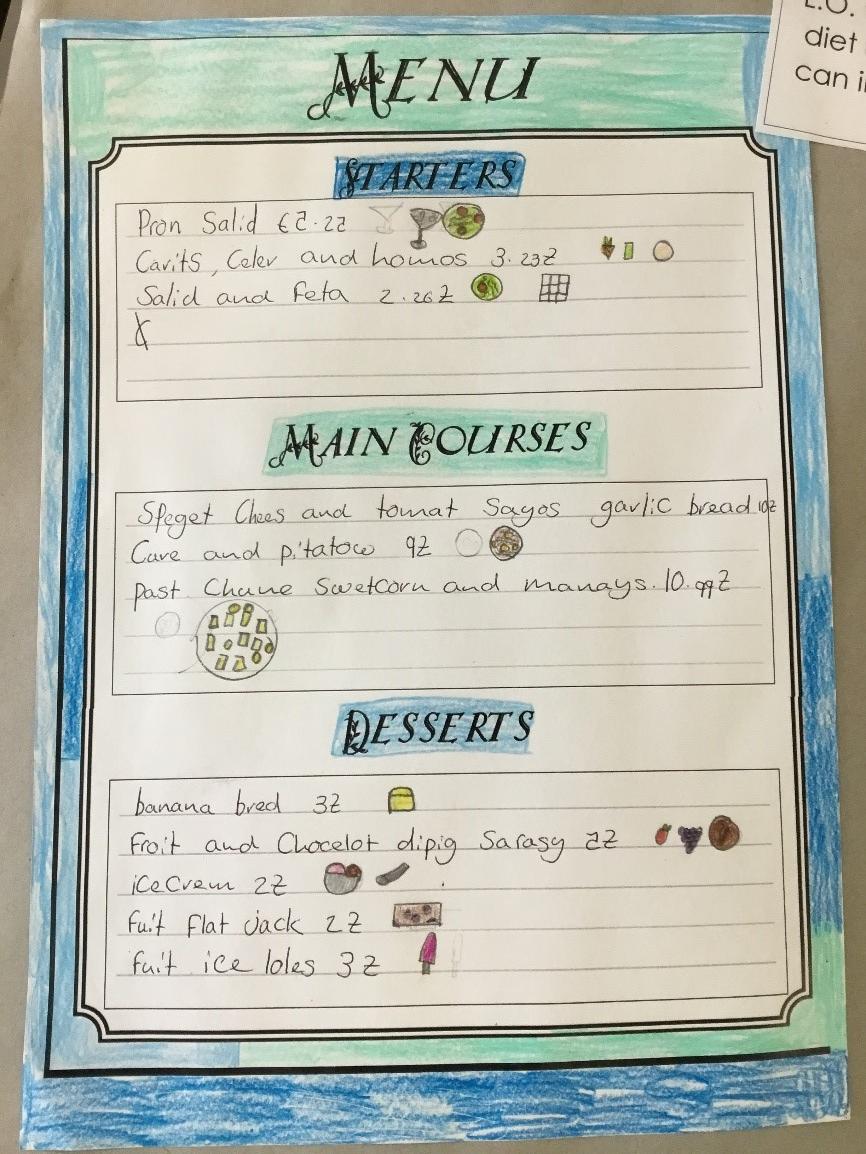 L.O.
diet
can i
MENU
STARTERS
Pron Salid £2.22
Carits, Celer and homos 3.23£
Salid and feta 2.26£
MAIN COURSES
Speget Chees and tomat Sayos garlic bread 10£
Cure and pitatow 9£
past Chane Swetcorn and manays. 10.99£
DESSERTS
banana bred 3£
Froit and Chocelot dipig Sarasy 2£
icecrem 2£
fuit flat jack 2£
fuit ice loles 3£